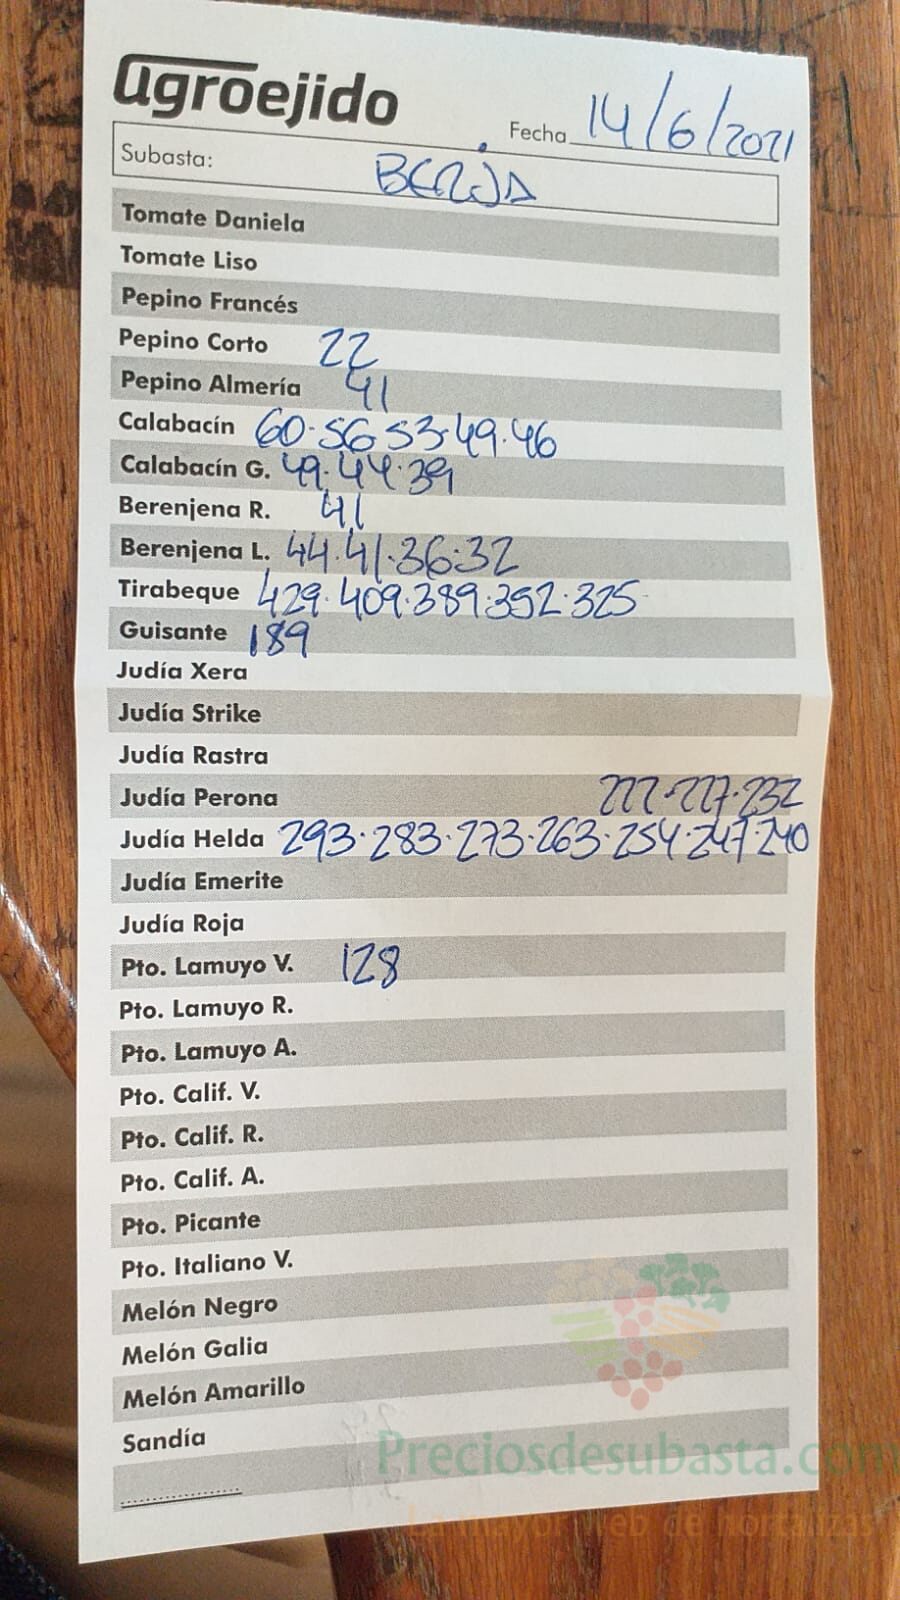 agroejido
Fecha 14/6/2021
Subasta: BERJA
Tomate Daniela
Tomate Liso
Pepino Francés
Pepino Corto 22
Pepino Almería 41
Calabacín 60·56·53·49·46
Calabacín G. 49·44·39
Berenjena R. 41
Berenjena L. 44·41·36·32
Tirabeque 429·409·389·352·325
Guisante 189
Judía Xera
Judía Strike
Judía Rastra
Judía Perona 222·227·232
Judía Helda 293·283·273·263·254·247·240
Judía Emerite
Judía Roja
Pto. Lamuyo V. 128
Pto. Lamuyo R.
Pto. Lamuyo A.
Pto. Calif. V.
Pto. Calif. R.
Pto. Calif. A.
Pto. Picante
Pto. Italiano V.
Melón Negro
Melón Galia
Melón Amarillo
Sandía
Preciosdesubasta.com
La mayor web de hortalizas